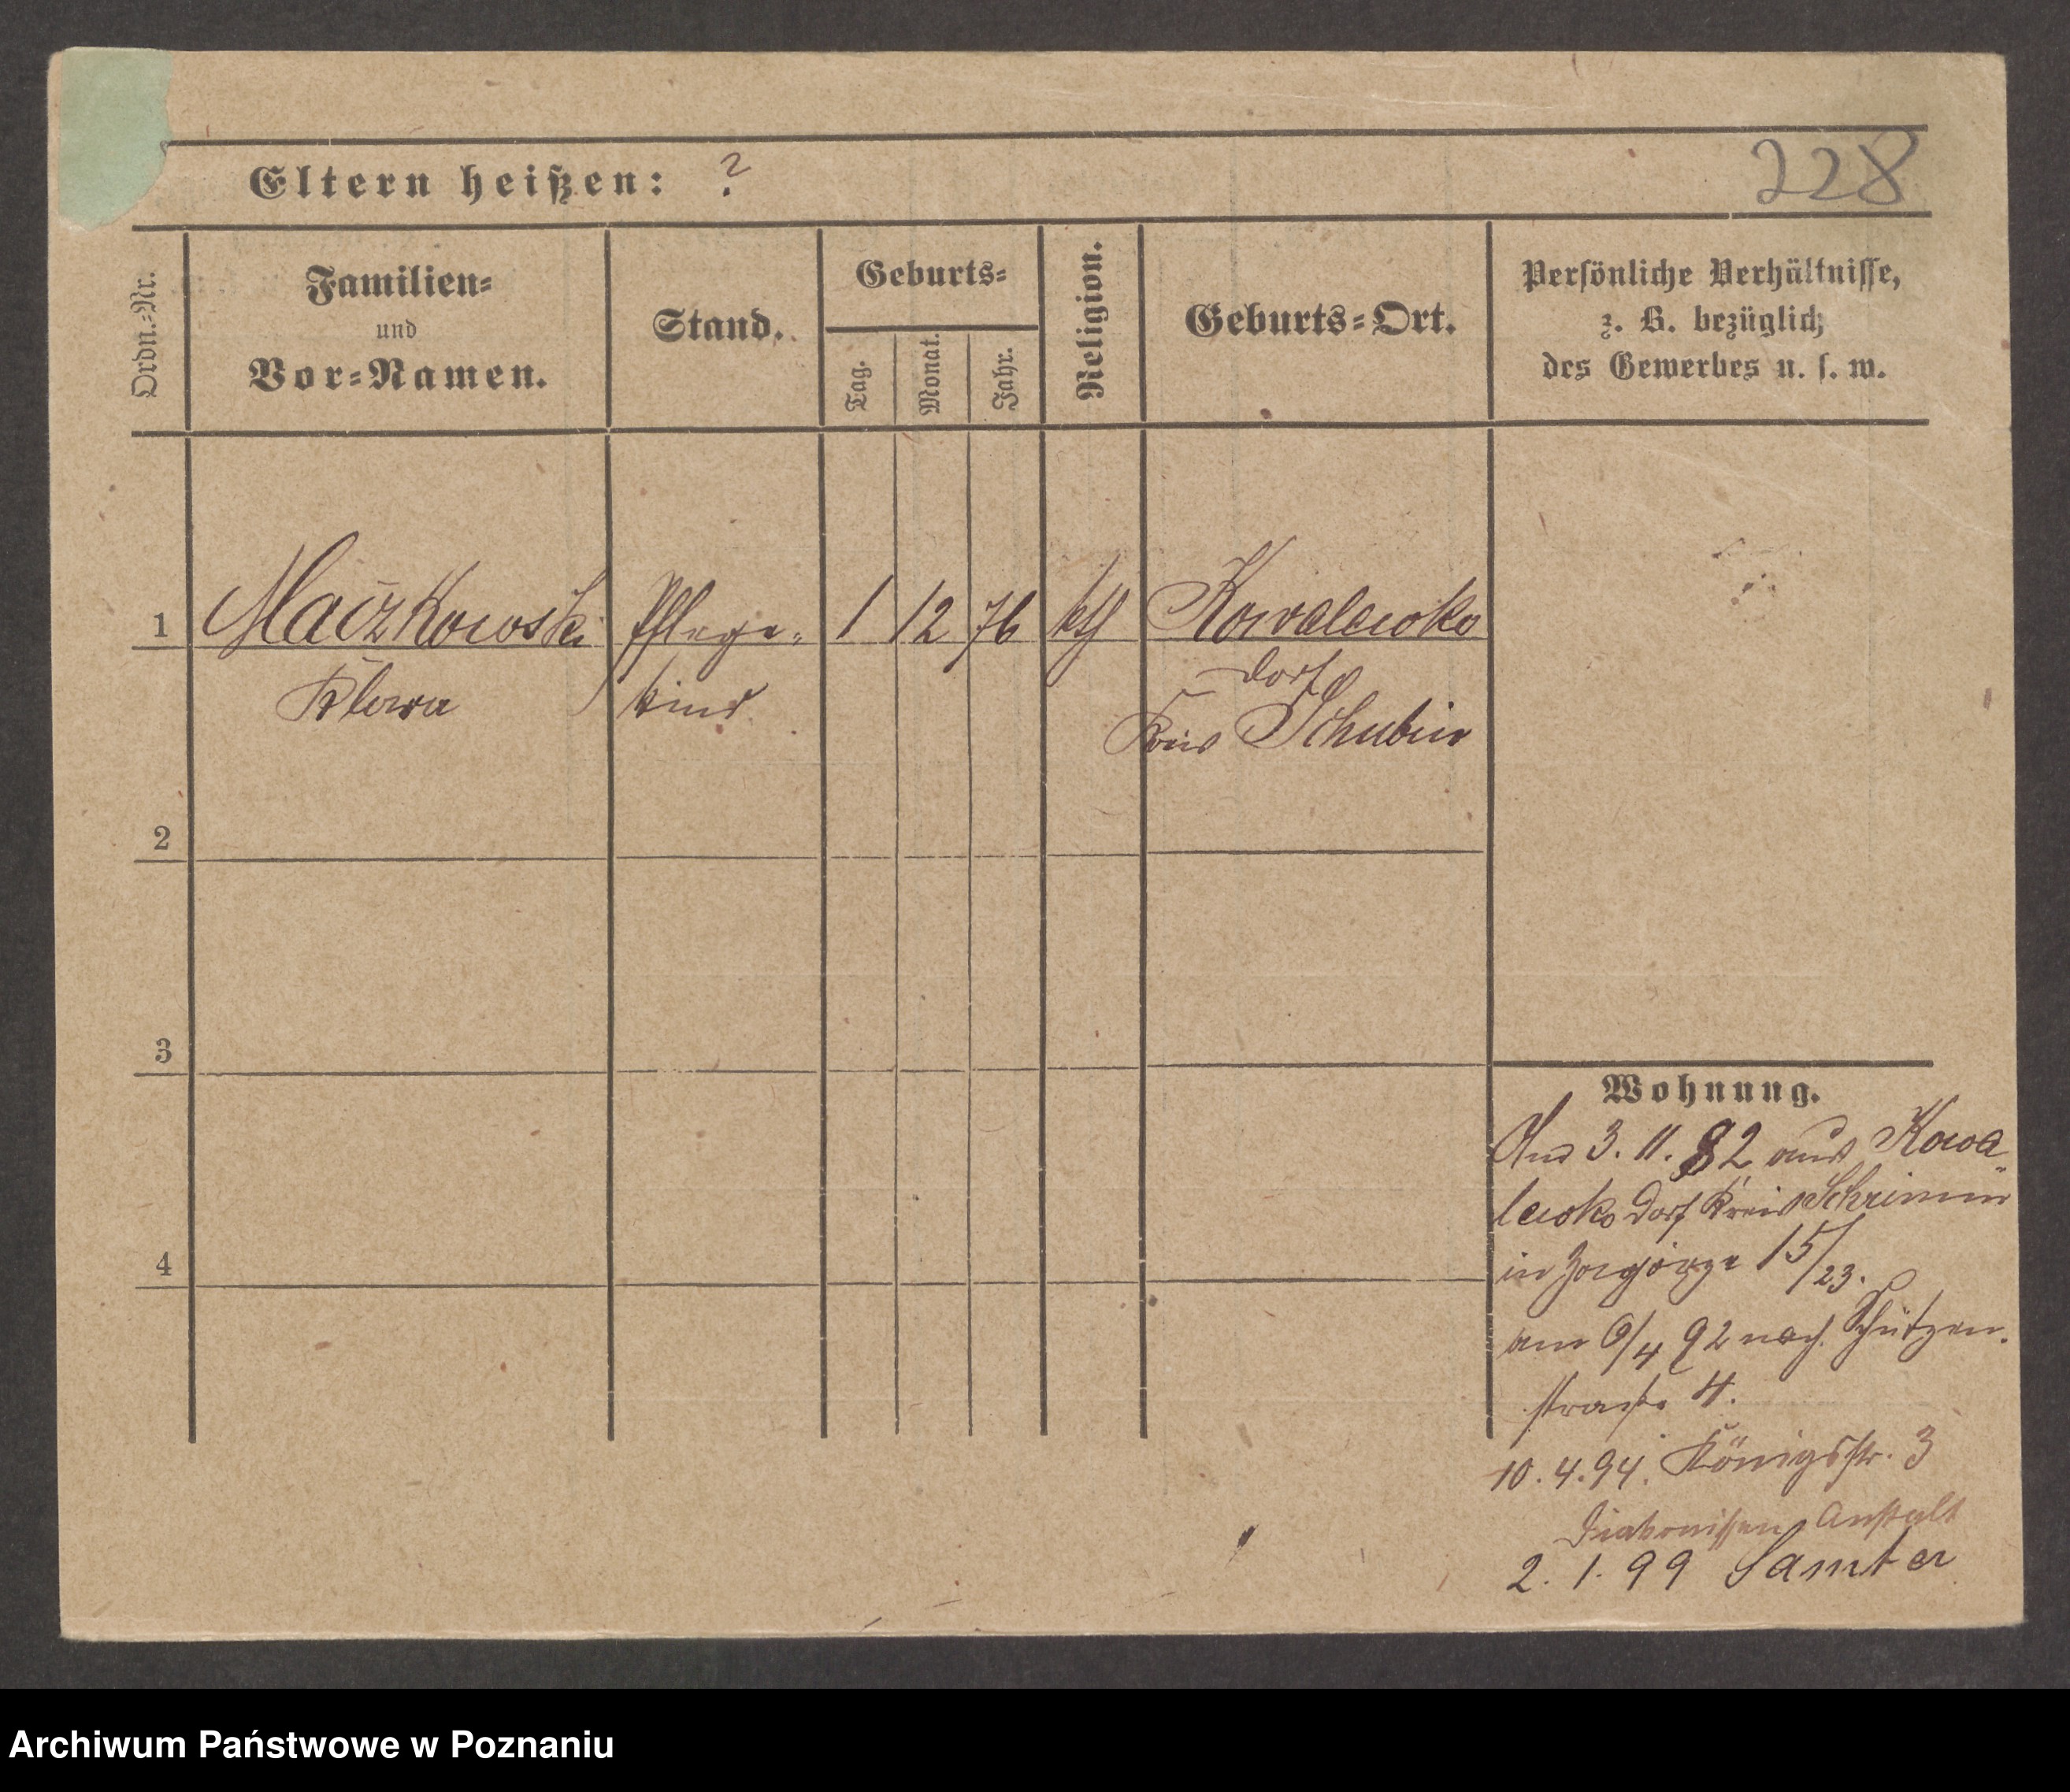 228
Eltern heißen: ?
Ordn.=Nr.
Familien=
und
Vor=Namen.
Stand.
Geburts=
Tag.
Monat.
Jahr.
Religion.
Geburts=Ort.
Persönliche Verhältnisse,
z. B. bezüglich
des Gewerbes u. s. w.
1
Maczkowski
Klara
Pflege=
kind
1
12
76
kth
Kowalewko
Dorf
Kreis Schubin
2
3
4
Wohnung.
3. 11. 82 aus Kowa
lewko Dorf Kreis Schrimm
in Zagorze 15/23.
am 6/4 92 nach Schützen.
straße 4.
10. 4. 94. Königsstr. 3
Diakonissen Anstalt
2. 1. 99 Samter
Archiwum Państwowe w Poznaniu